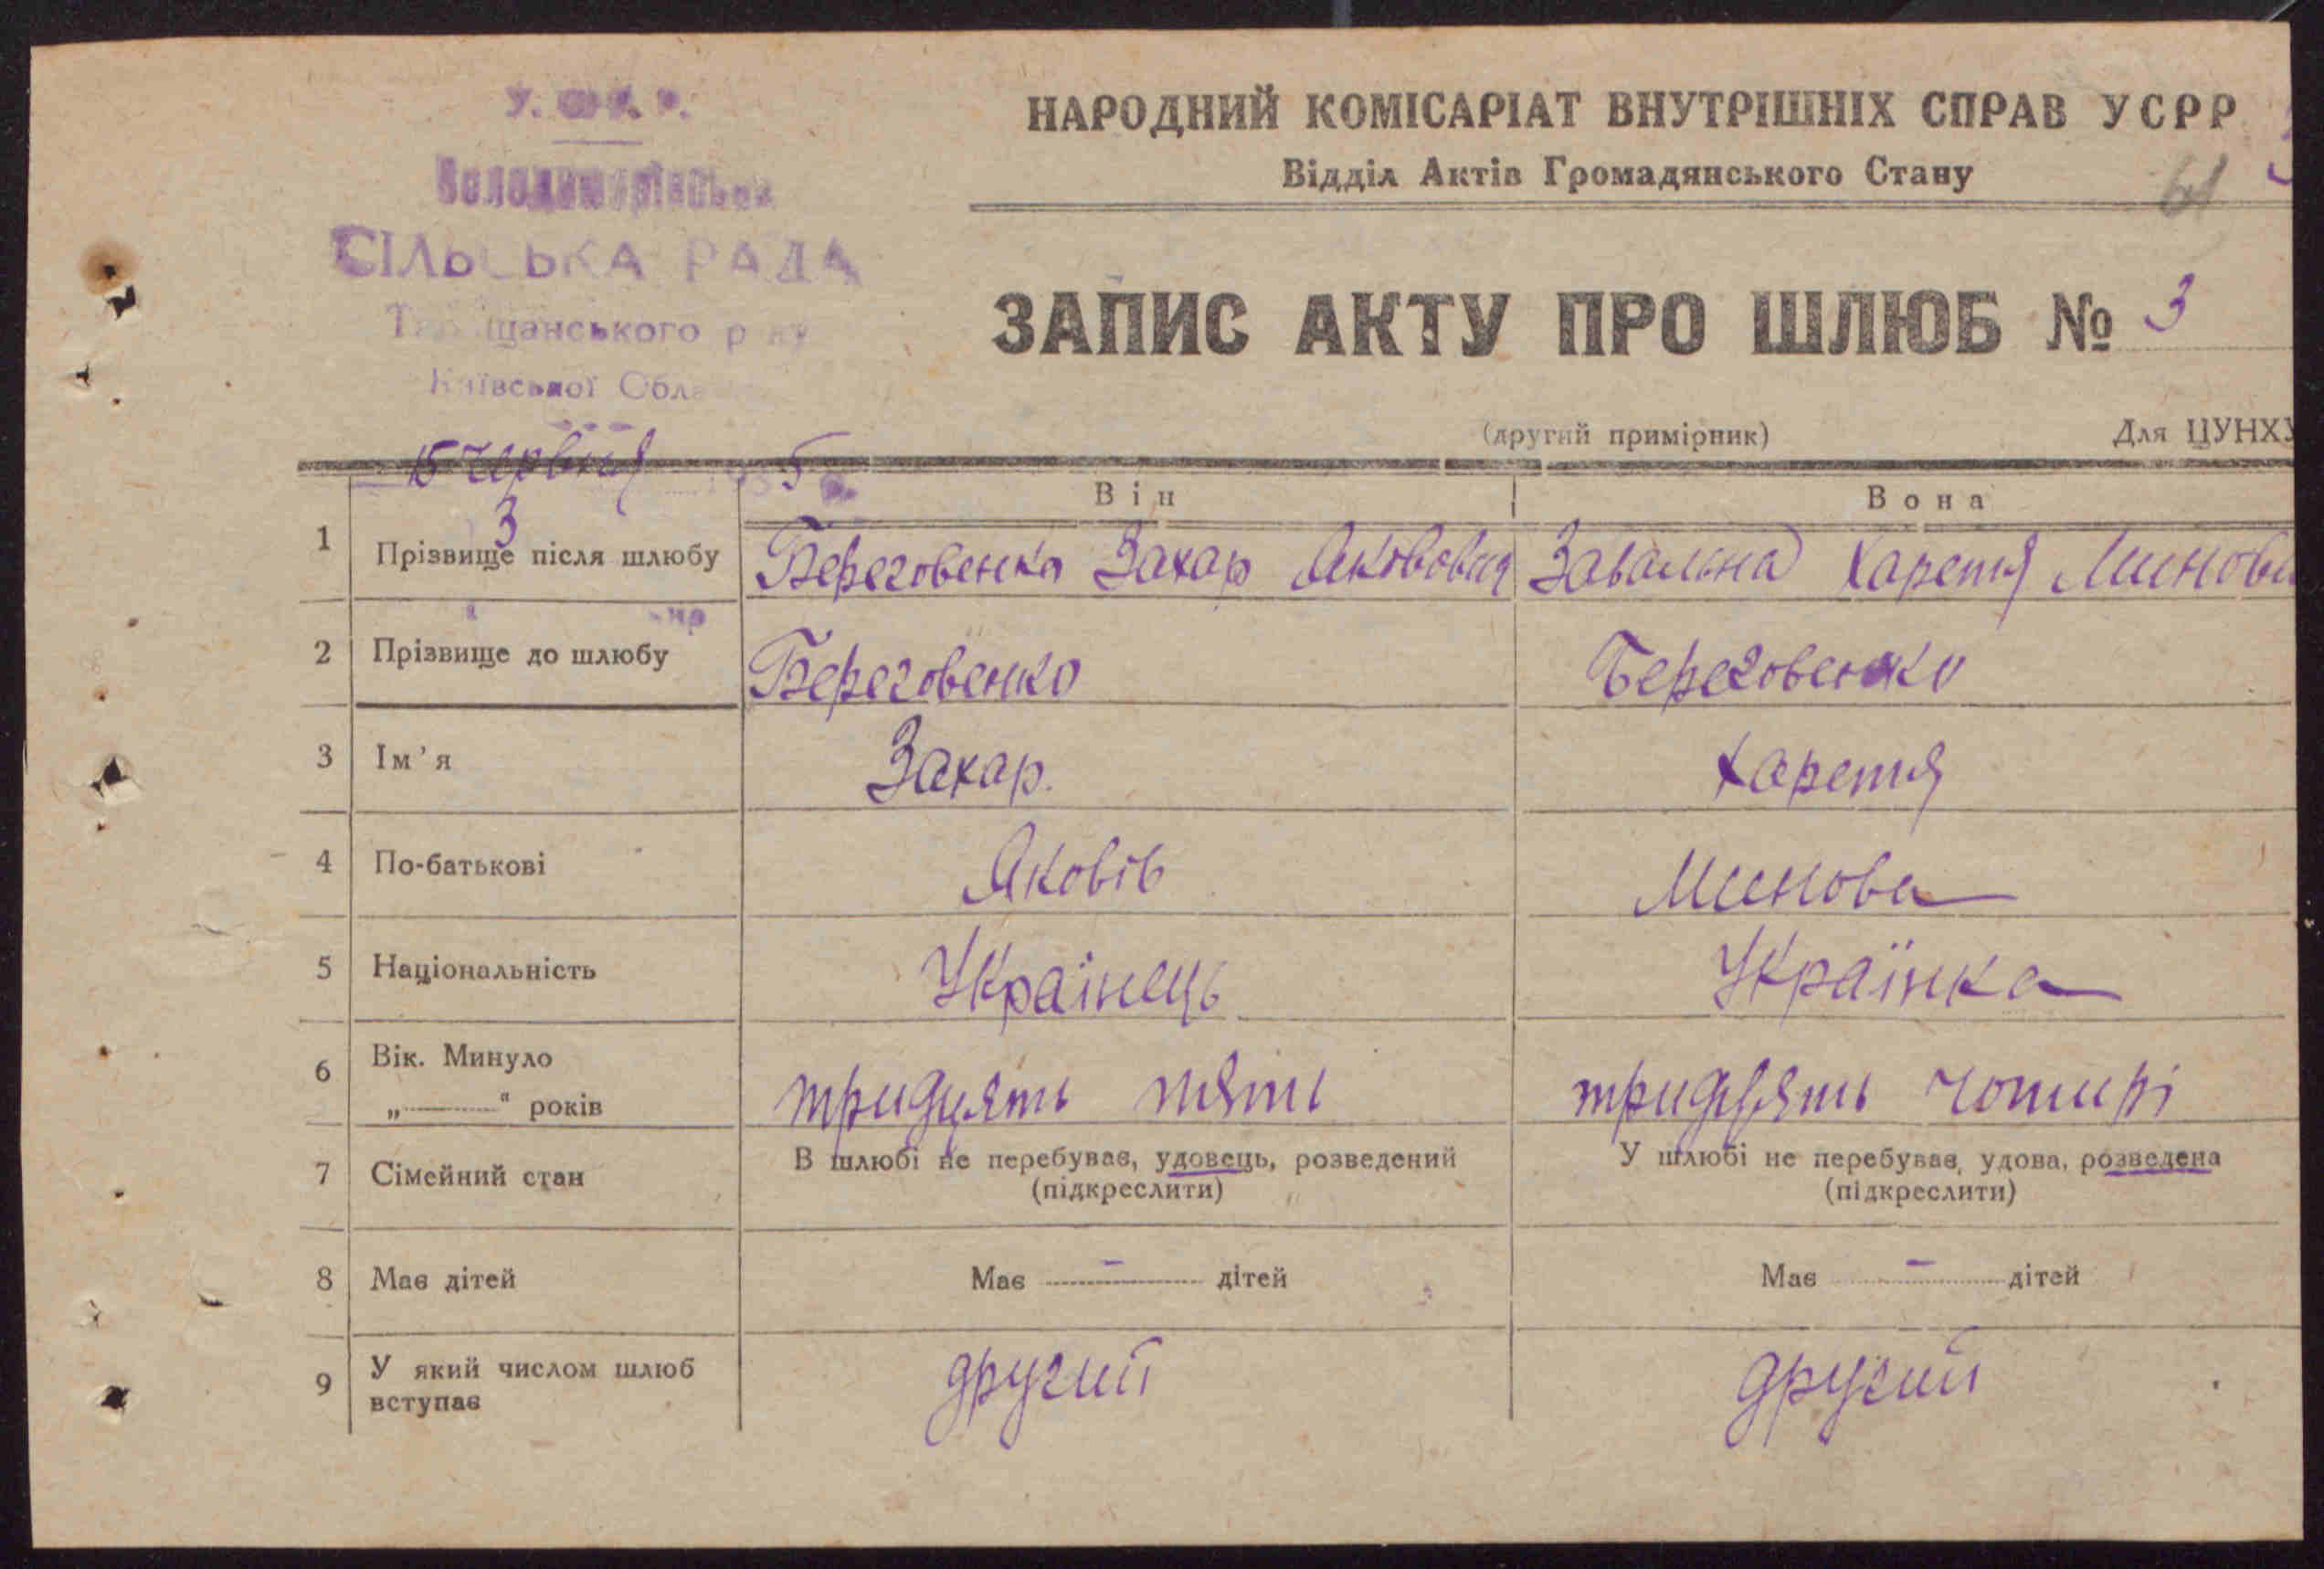 У. С. Р. Р.
Володимирівська
СІЛЬСЬКА РАДА
Таращанського р-ну
Київської Обла
15 червня 1935
3
НАРОДНИЙ КОМІСАРІАТ ВНУТРІШНІХ СПРАВ УСРР
Відділ Актів Громадянського Стану
61
ЗАПИС АКТУ ПРО ШЛЮБ № 3
(другий примірник) Для ЦУНХУ
Він Вона
1 Прізвище після шлюбу Береговенко Захар Якович Завальна Харетя Минови
2 Прізвище до шлюбу Береговенко Береговенко
3 Ім'я Захар. Харетя
4 По-батькові Яковів Минова
5 Національність Українець Українка
6 Вік. Минуло
„ “ років тридцять пять тридцять чотирі
7 Сімейний стан В шлюбі не перебував, удовець, розведений У шлюбі не перебував, удова, розведена
(підкреслити) (підкреслити)
8 Має дітей Має – дітей Має – дітей
9 У який числом шлюб
вступає другий другий